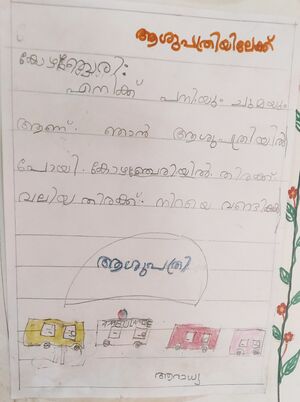 ആശുപത്രിയിലേക്ക്
കോഴഞ്ചേരി:
എനിക്ക് പനിയും ചുമയും
ആണ്. ഞാൻ ആശുപത്രിയിൽ
പോയി. കോഴഞ്ചേരിയിൽ തിരക്ക്
വലിയ തിരക്ക്. നിറയെ വണ്ടികൾ
ആശുപത്രി
ആരാധ്യ